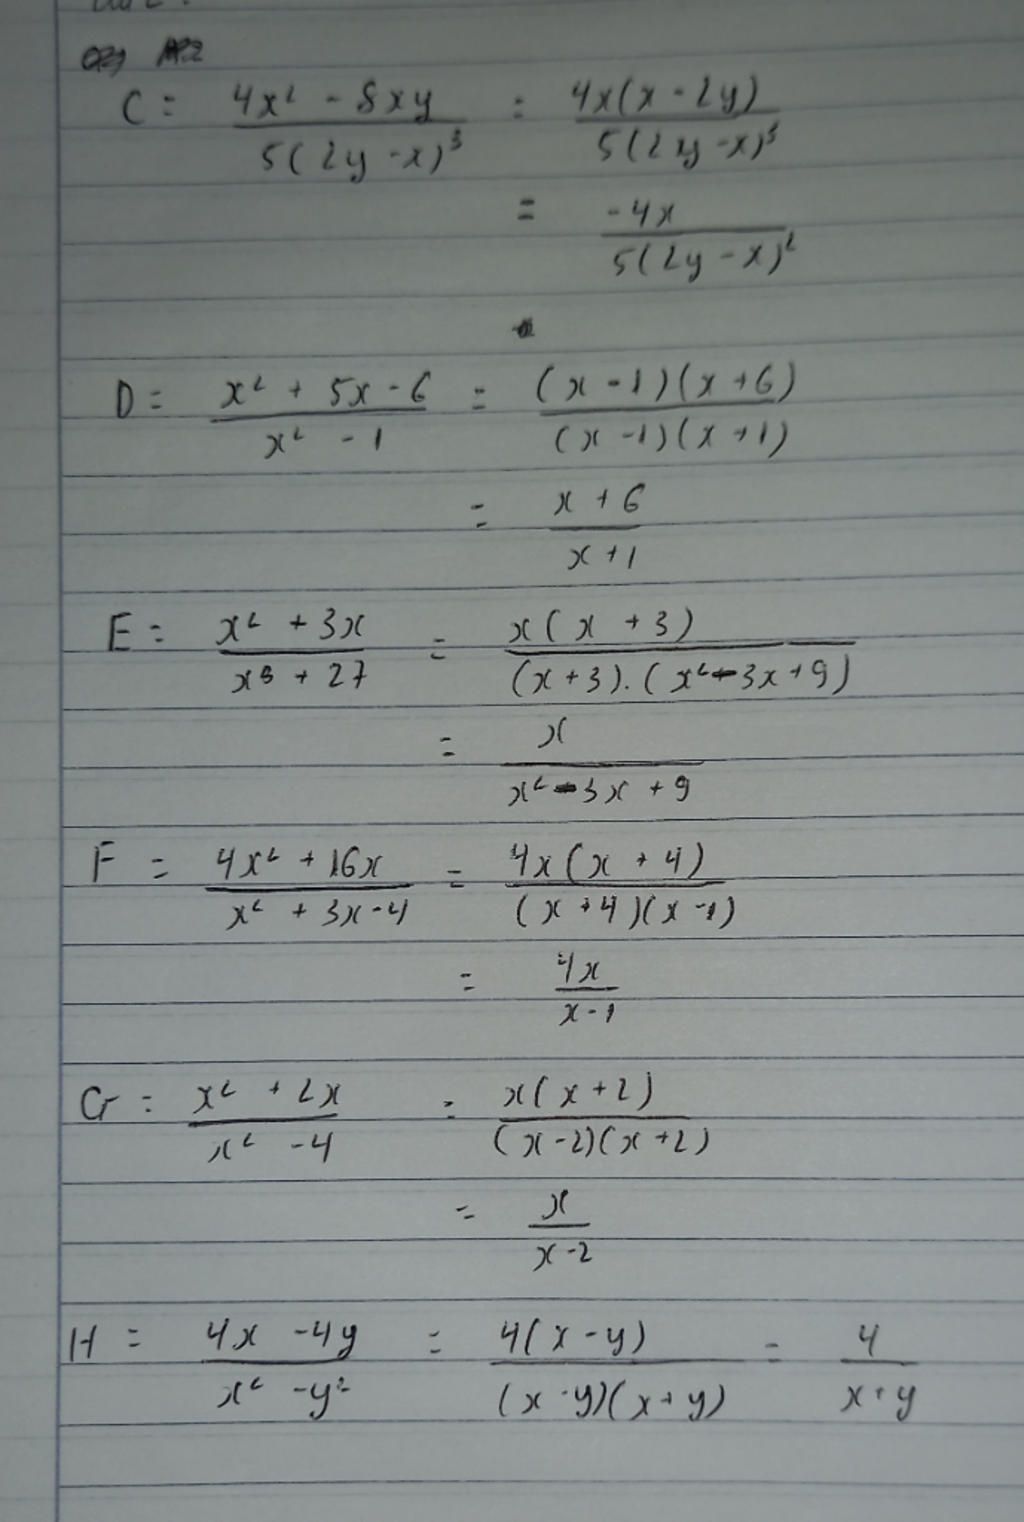 C = 4x² - 8xy / 5(2y - x)³ = 4x(x - 2y) / 5(2y - x)³
= -4x / 5(2y - x)²
D = x² + 5x - 6 / x² - 1 = (x - 1)(x + 6) / (x - 1)(x + 1)
= x + 6 / x + 1
E = x² + 3x / x³ + 27 = x(x + 3) / (x + 3).(x² - 3x + 9)
= x / x² - 3x + 9
F = 4x² + 16x / x² + 3x - 4 = 4x(x + 4) / (x + 4)(x - 1)
= 4x / x - 1
G = x² + 2x / x² - 4 = x(x + 2) / (x - 2)(x + 2)
= x / x - 2
H = 4x - 4y / x² - y² = 4(x - y) / (x - y)(x + y) = 4 / x + y